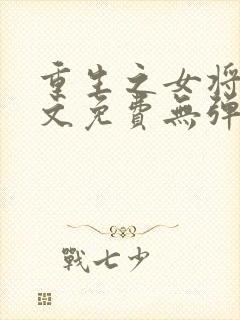 重生之女将
文免費無彈
戰七少